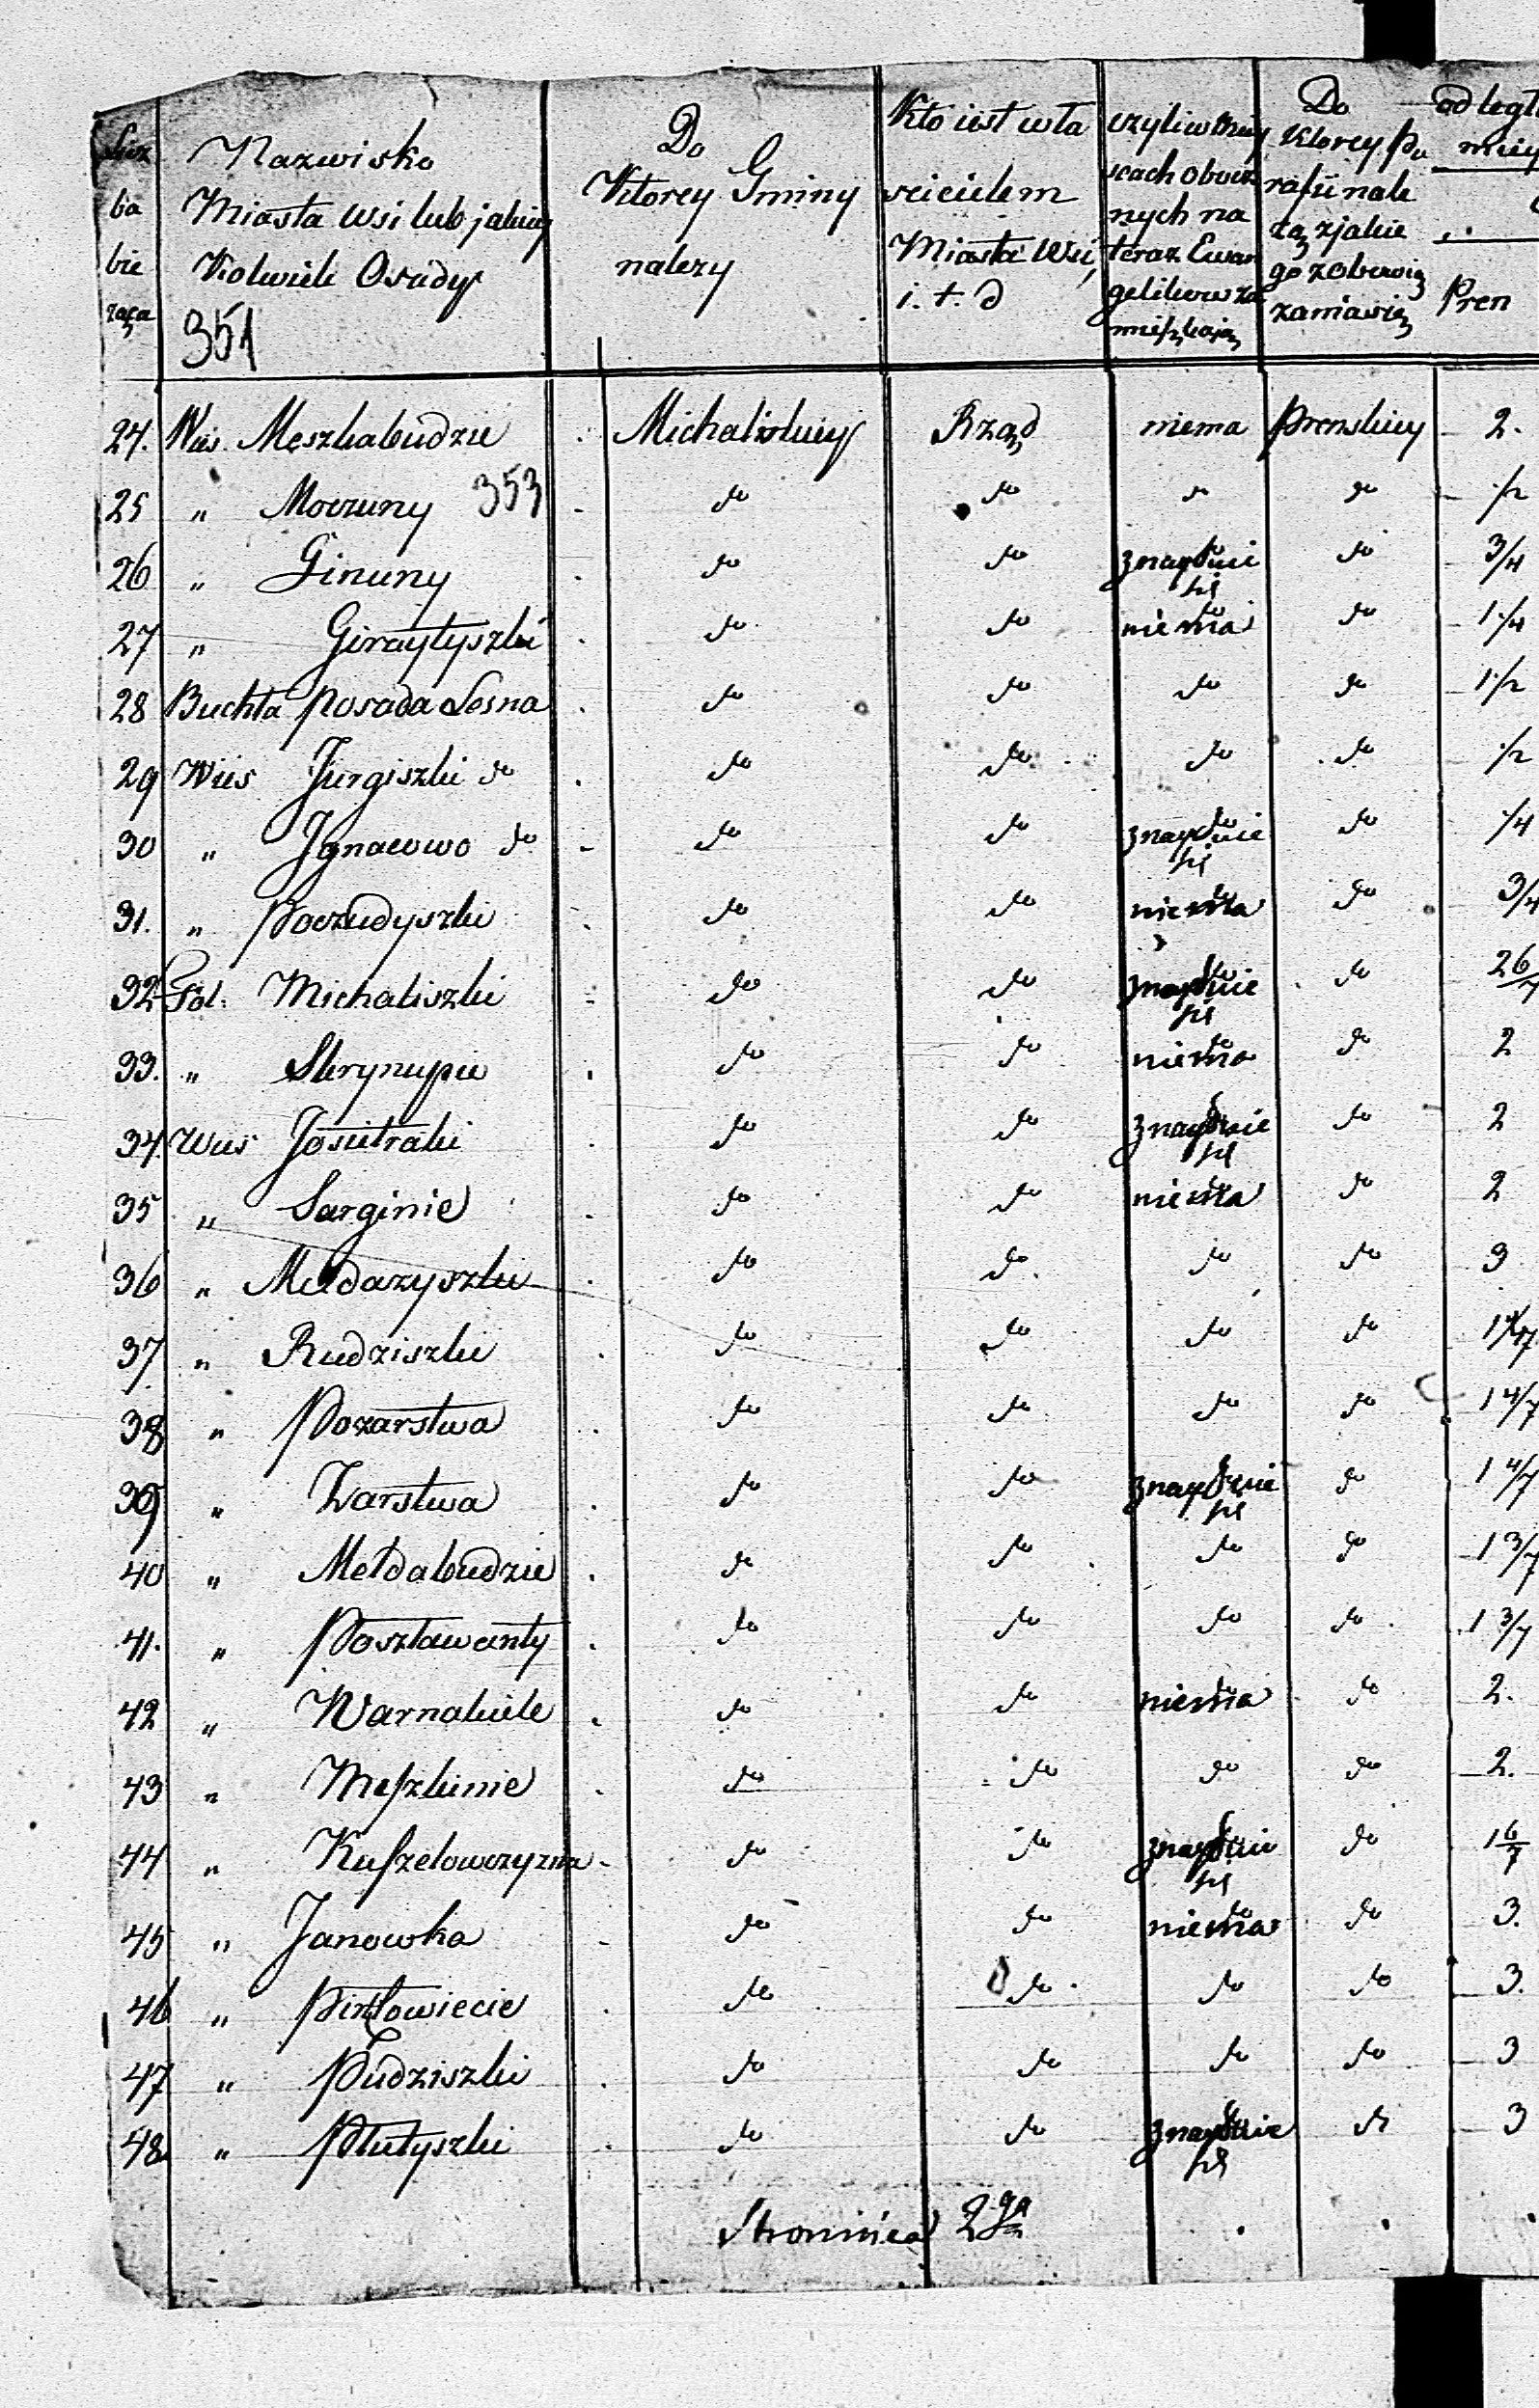 Licz
ba
bie
żąca
Nazwisko
Miasta wsi lub jakiey
Kolwiek Osady
351
Do
Ktorey Gminy
nalezy
Kto iest wła
scicielem
Miasta Wsi,
i. t. d
czyli w Miey
scach obocz
nych na
teraz Ewan
gelikow za
mieszkaią
Do
Ktorey Pa
rafii nale
żą z jakie
go zobowią
zania się
odległ
miey
Pren
24. Wies. Męszkabudzie Michaliskiey Rząd niema Prenskiey 2.
25 " Moczuny 353 do do do do 1/2
26 " Ginuny do do znayduie się do 3/4
27 " Giraytyszki do do niema do 1 1/4
28 Buchta posada Lesna do do do do 1 1/2
29 Wies Jurgiszki do do do do do 1/2
30 " Ignacowo do do do znayduie się do 1/4
31. " Poczudyszki do do niema do 3/4
32 Fol. Michaliszki do do znayduie się do 26/7
33. " Skrynupie do do niema do 2
34 Wies Josietraki do do znayduie się do 2
35 " Sarginie do do niema do 2
36 " Meldazyszki do do do do 3
37 " Rudziszki do do do do
38 " Pozarstwa do do do do 1 4/7
39 " Zarstwa do do znayduie się do 1 4/7
40 " Mełdabudzie do do do do 1 3/7
41. " Poszławanty do do do do 1 3/7
42 " Warnakiele do do niema do 2.
43 " Meszkinie do do do do 2.
44 " Kuszelowczyzna do do znayduie się do 1 6/7
45 " Janowka do do niema do 3.
46 " Pirsłowiecie do do do do 3.
47 " Pudziszki do do do do 3
48 " Plutyszki do do znayduie się do 3
Stronnica 2ga